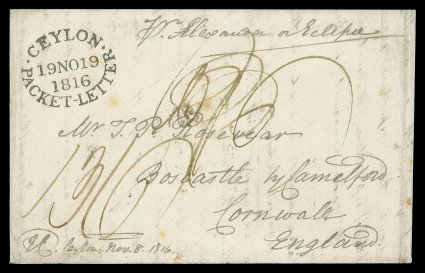 CEYLON
PACKET-LETTER
19NO19
1816
Pr. Alexander or Eclipse
Mr T. P. Rosevear
Boscastle by Camelford
Cornwall
England
Ceylon, Nov. 8. 1816.